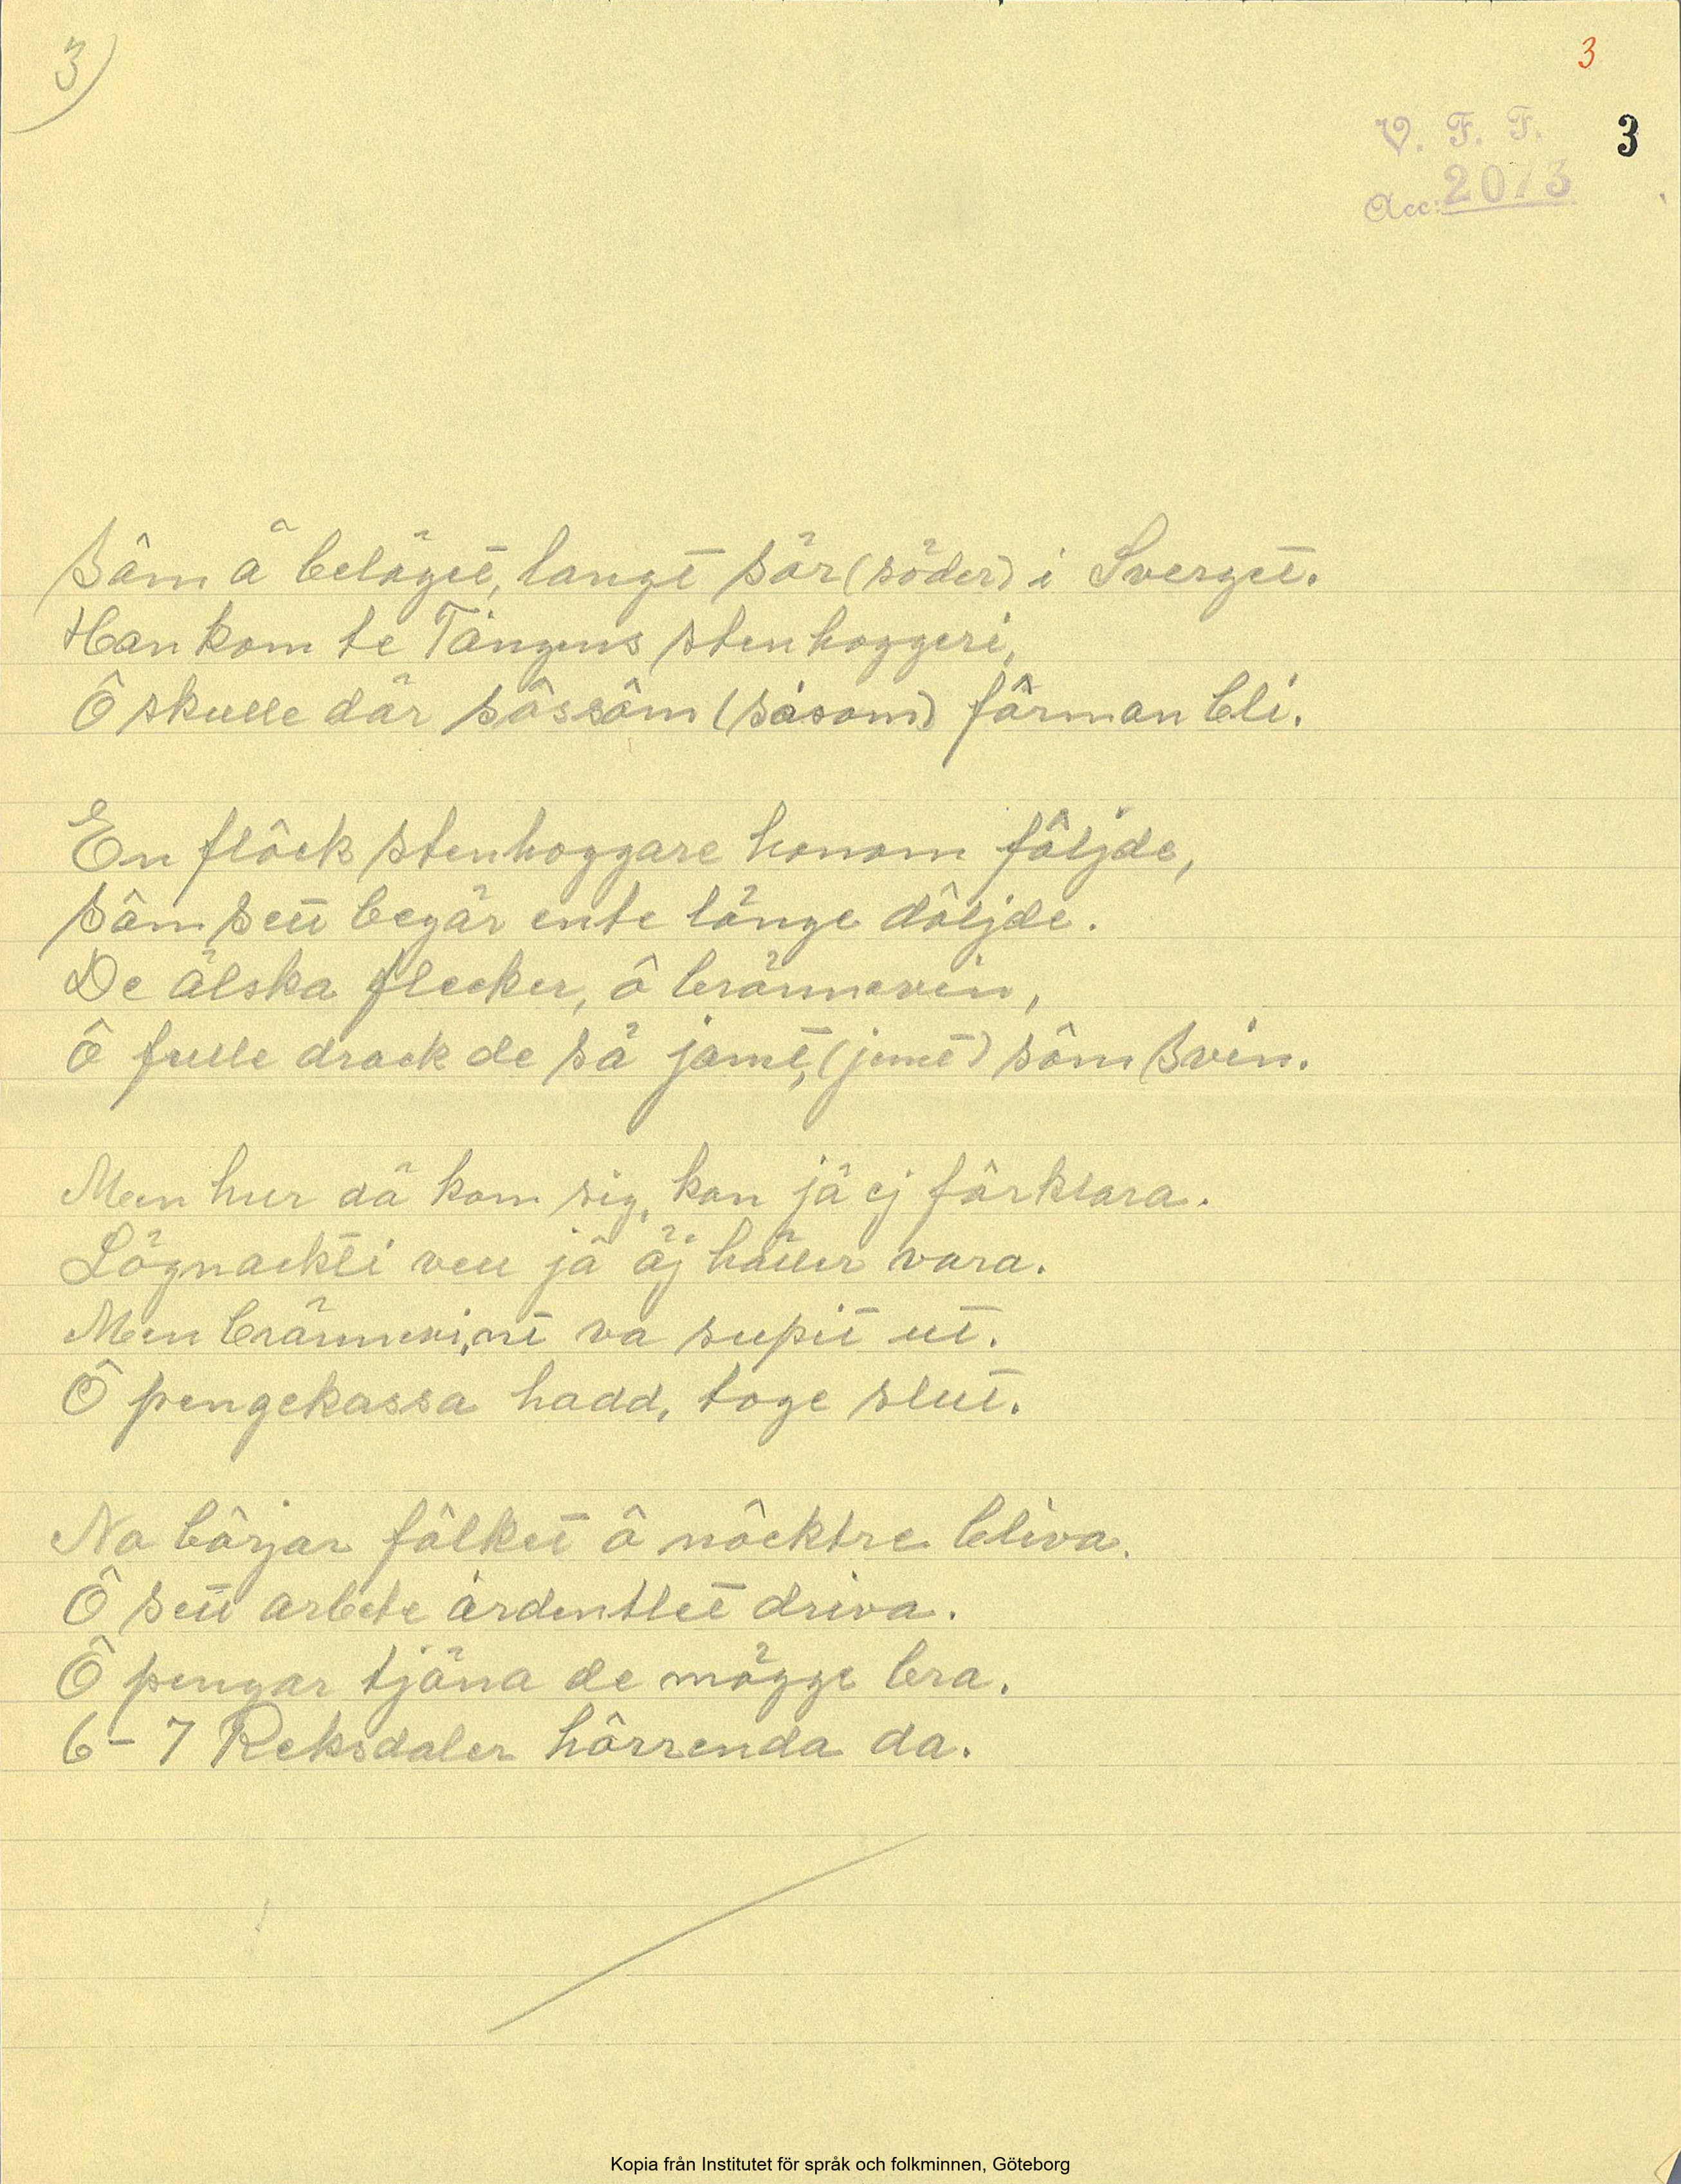 3)
3
V. F. F. 3
Acc: 2073
Sôm ä beläget, langt sör (söder) i Sverget.
Han kom te Tångens stenhoggeri,
Ô skulle där sôssôm (såsom) fôrman bli.
En flôck stenhoggare honom fôljde,
sôm sett begär ente länge dôljde.
De älska flecker, ô brännevin,
ô fulle drack de så jamt, (jemt) sôm svin.
Men hur dä kom sig, kan jä ej fôrklara.
Lögnackti vell jä äj häller vara.
Men brännevi,nt va supit ut.
Ô pengekassa hadd, toge slut.
Na bôrjar fôlket ô nôcktre bliva.
Ô sett arbete årdentlet driva.
Ô pengar tjäna de mögge bra.
6-7 Reksdaler hôrrenda da.
Kopia från Institutet för språk och folkminnen, Göteborg